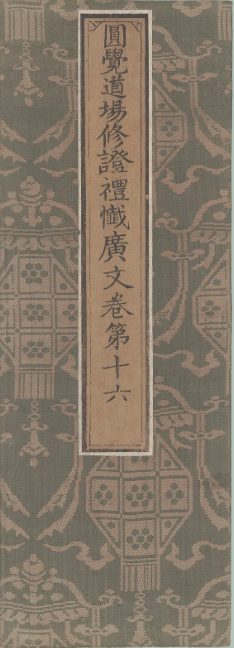 圓覺道場修證禮懺廣文卷第十六